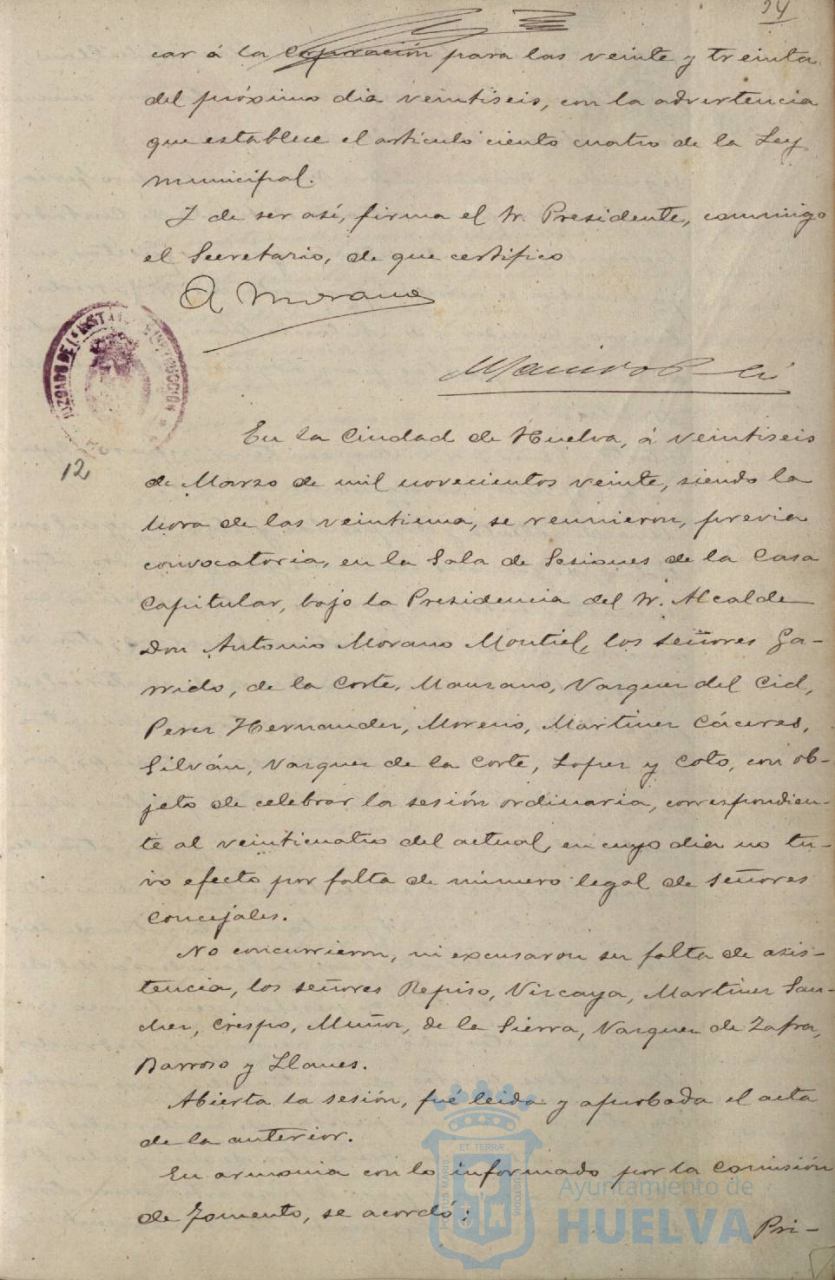 24
car á la Corporación para las veinte y treinta
del próximo dia veintiseis, con la advertencia
que establece el articulo ciento cuatro de la Ley
municipal.
Y de ser así, firma el Sr. Presidente, conmigo
el Secretario, de que certifico
A Morano
JUZGADO DE 1ª INSTANCIA E INSTRUCCION
12
En la Ciudad de Huelva, á veintiseis
de Marzo de mil novecientos veinte, siendo la
hora de las veintiuna, se reunieron, previa
convocatoria, en la Sala de Sesiones de la Casa
Capitular, bajo la Presidencia del Sr. Alcalde
Don Antonio Morano Montiel, los señores Ga-
rrido, de la Corte, Manzano, Vazquez del Cid,
Perez Hernandez, Moreno, Martinez Cáceres,
Silván, Vazquez de la Corte, Lopez y Coto, con ob-
jeto de celebrar la sesión ordinaria, correspondien-
te al veinticuatro del actual, en cuyo dia no tu-
vo efecto por falta de número legal de señores
concejales.
No concurrieron, ni excusaron su falta de asis-
tencia, los señores Repiso, Vizcaya, Martinez San-
chez, Crespo, Muñoz, de la Sierra, Vazquez de Zafra,
Barroso y Llanes.
Abierta la sesión, fué leida y aprobada el acta
de la anterior.
En armonia con lo informado por la Comisión
de Fomento, se acordó:
Pri-
Ayuntamiento de
HUELVA